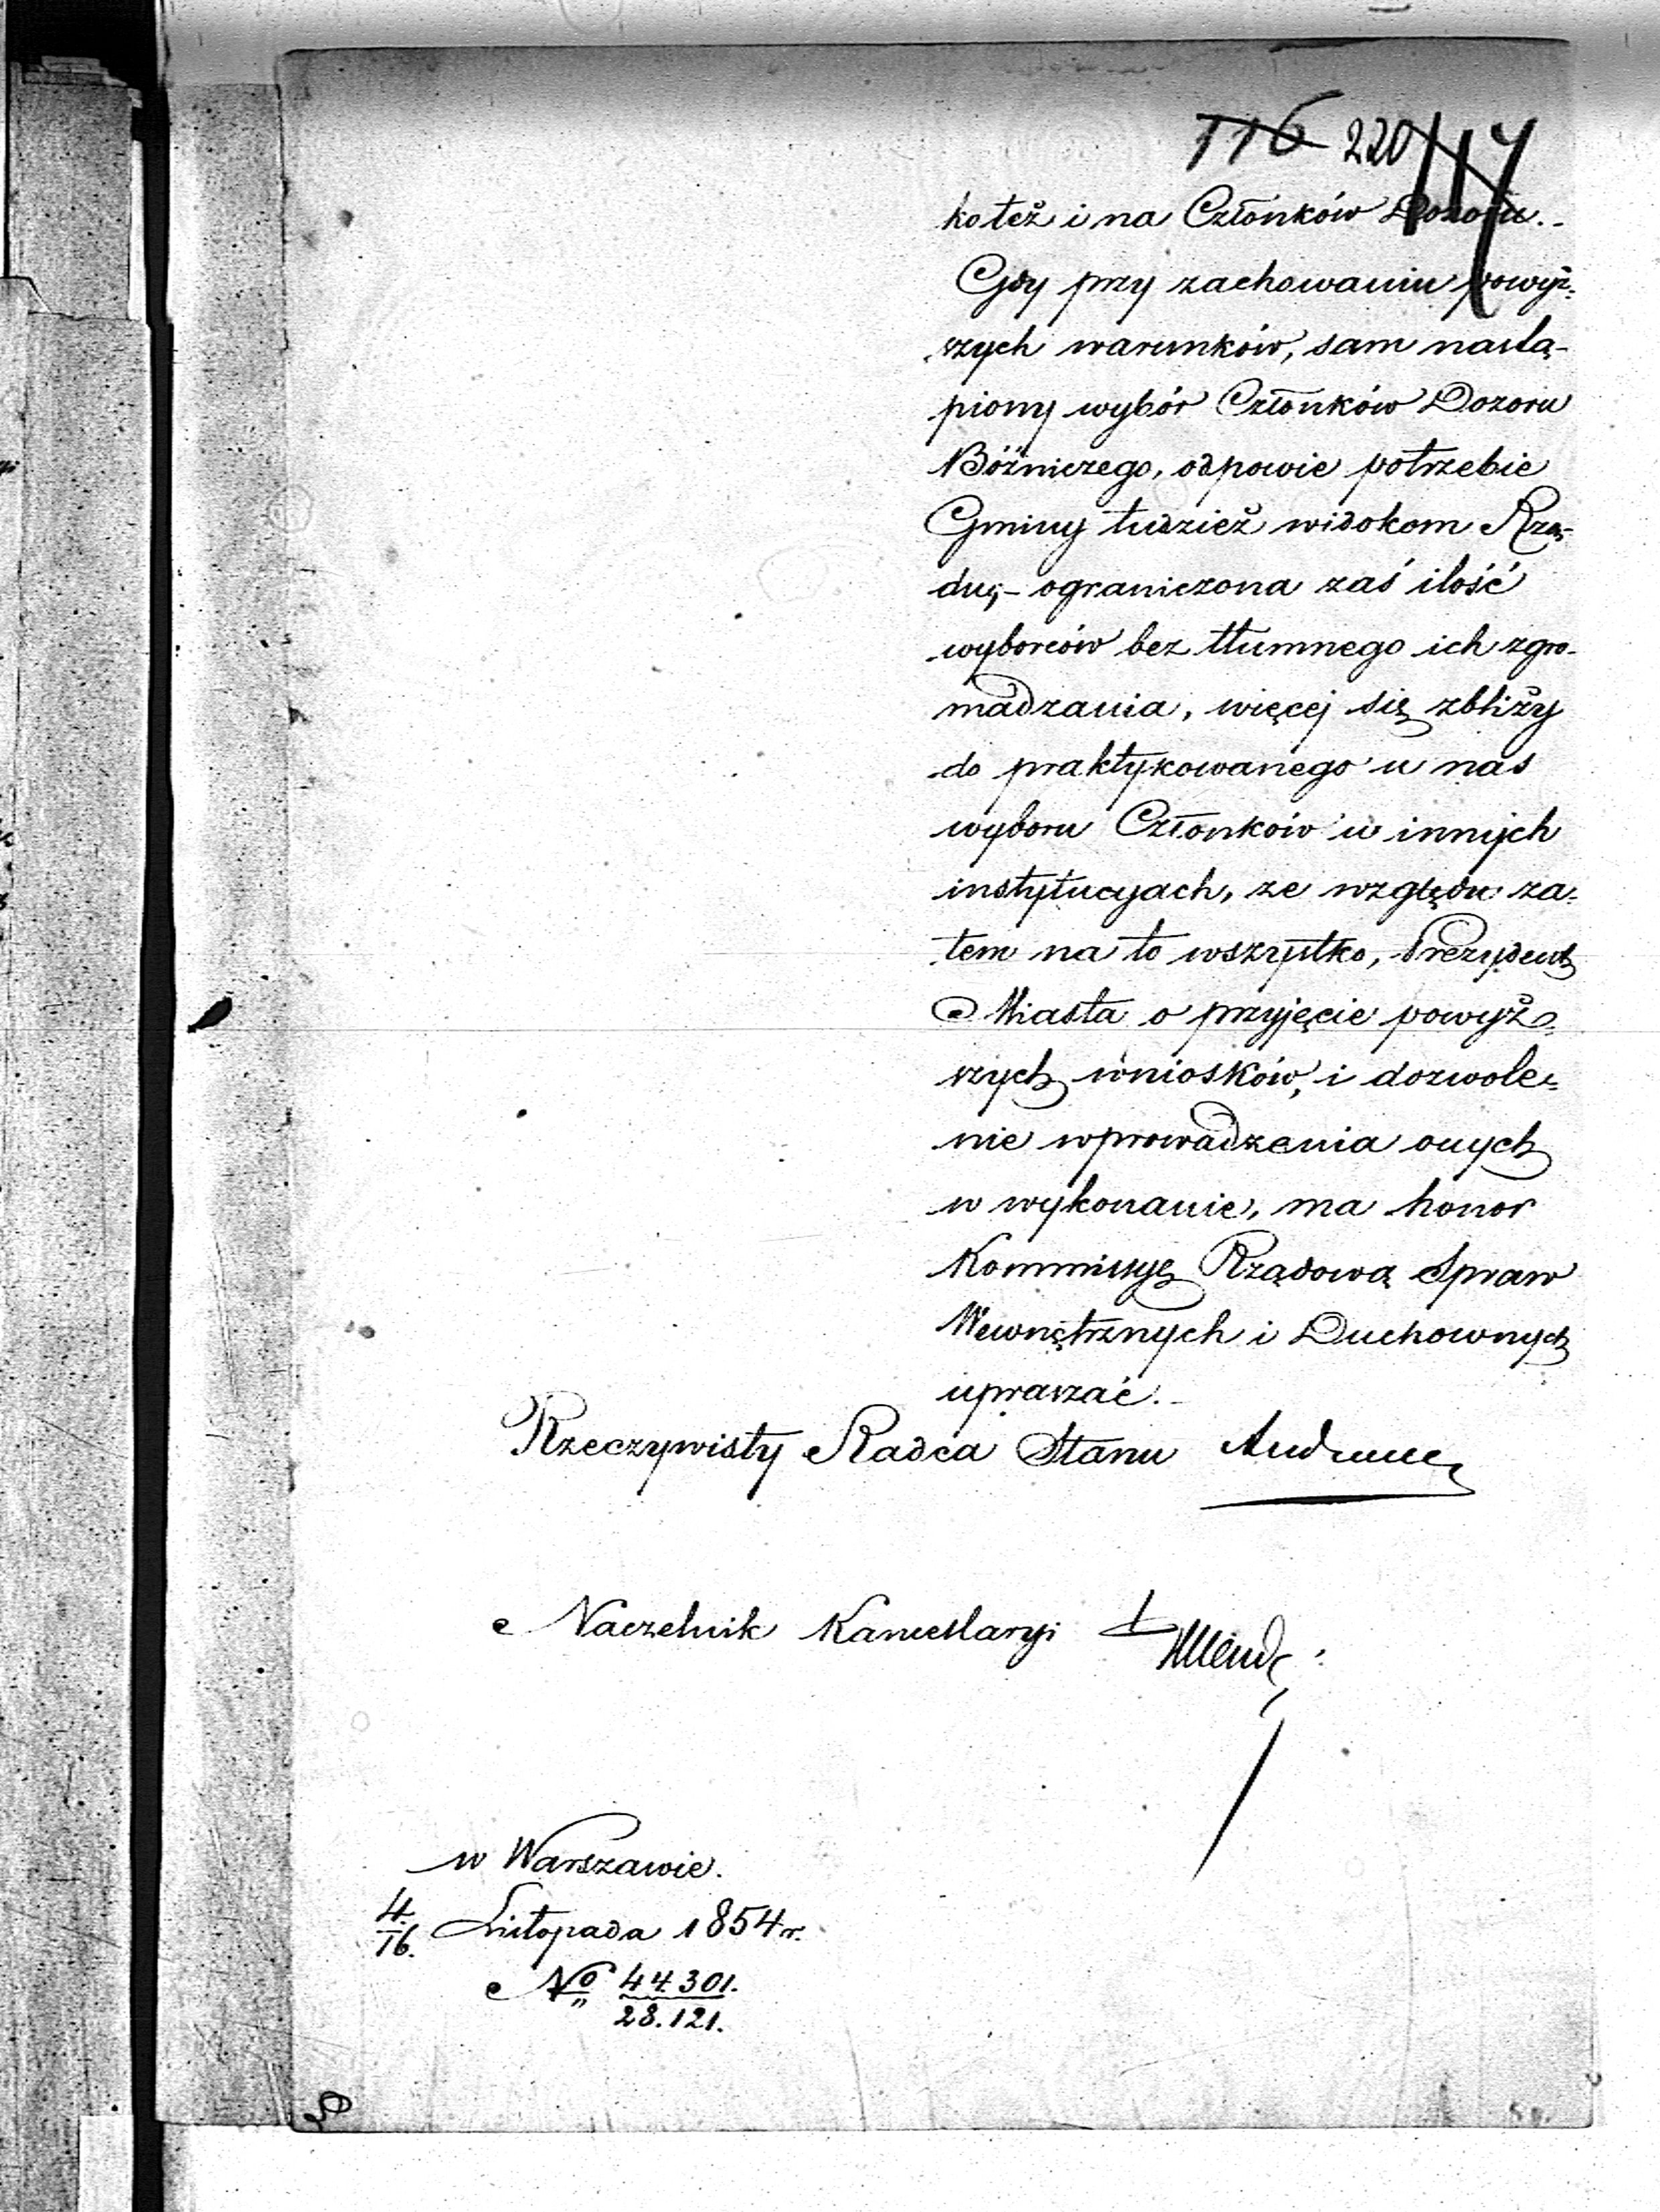 116 220 117
ko też i na Członków Dozoru.-
Gdy przy zachowaniu powyż=
szych warunków, sam nastą-
piony wybór Członków Dozoru
Bóźniczego, odpowie potrzebie
Gminy tudzież widokom Rzą-
du;- ograniczona zaś ilość
wyborców bez tłumnego ich zgro-
madzania, więcej się zbliży
do praktykowanego u nas
wyboru Członków w innych
instytucyach, ze względu za=
tem na to wszystko, Prezydent
Miasta o przyjęcie powyż=
szych wniosków, i dozwole=
nie wprowadzenia onych
w wykonanie, ma honor
Kommissyę Rządową Spraw
Wewnętrznych i Duchownych
upraszać.-
Rzeczywisty Radca Stanu
Naczelnik Kancellaryi
w Warszawie.
4./16. Listopada 1854 r.
No 44.301.
28.121.